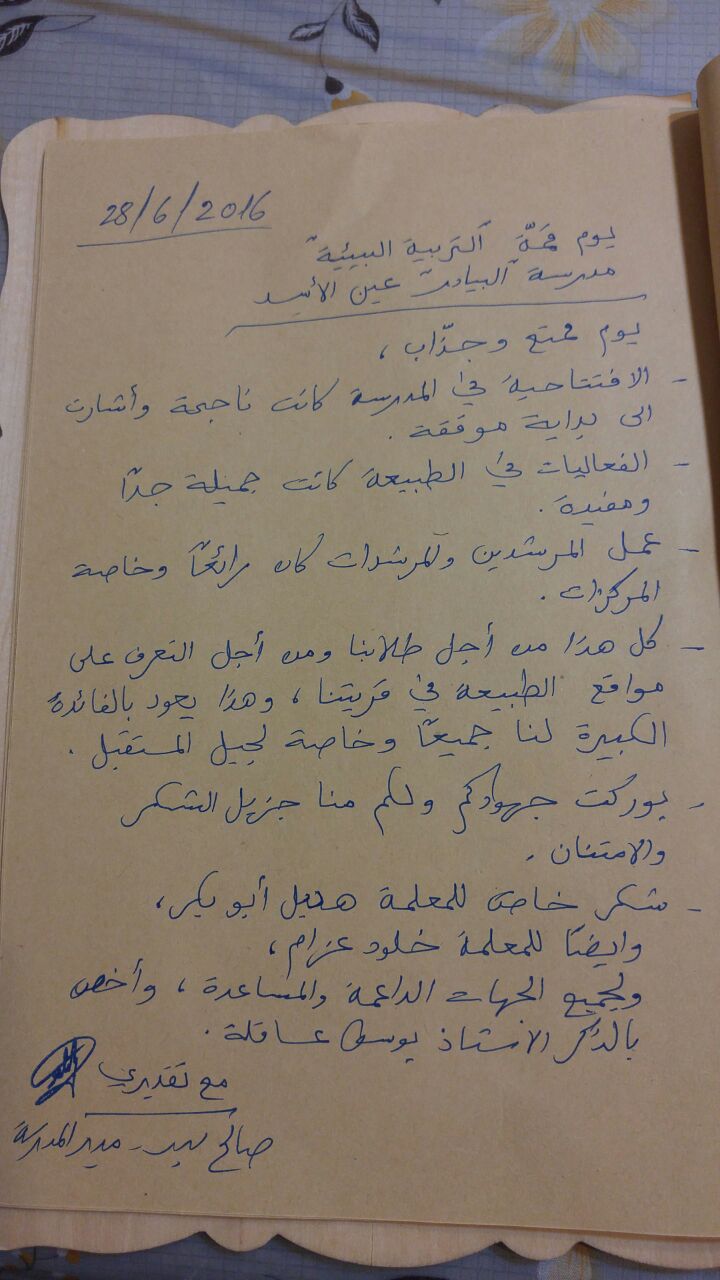 28/6/2016
يوم قمّة "التربية البيئية"
مدرسة "البيادر" عين الأسد
يوم ممتع وجذّاب،
- الافتتاحية في المدرسة كانت ناجحة وأشارت
الى بداية موفقة.
- الفعاليات في الطبيعة كانت جميلة جدًا
ومفيدة.
- عمل المرشدين والمرشدات كان رائعًا وخاصة
المركزات.
- كل هذا من أجل طلابنا ومن أجل التعرف على
مواقع الطبيعة في قريتنا، وهذا يعود بالفائدة
الكبيرة لنا جميعًا وخاصة لجيل المستقبل.
- بوركت جهودكم ولكم منا جزيل الشكر
والامتنان.
- شكر خاص للمعلمة هديل أبو بكر،
وايضًا للمعلمة خلود عزام،
ولجميع الجهات الداعمة والمساعدة، وأخص
بالذكر الاستاذ يوسف عساقلة.
مع تقديري
صالح - مدير المدرسة